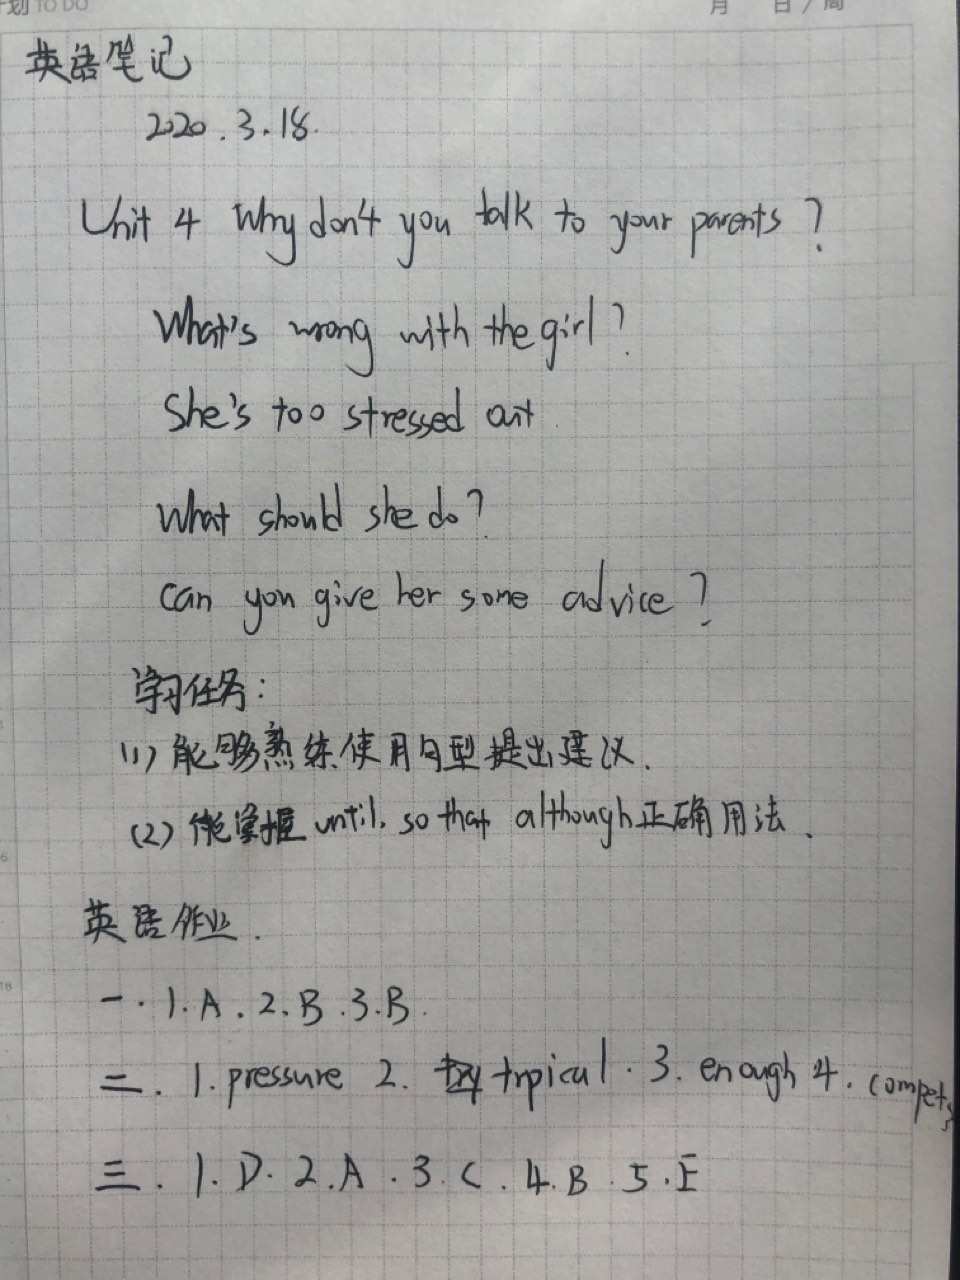 划 TO DO 月 日 / 周
英语笔记
2020.3.18.
Unit 4 Why don't you talk to your parents?
What's wrong with the girl?
She's too stressed out.
What should she do?
Can you give her some advice?
学习任务:
(1) 能够熟练使用句型提出建议.
(2) 能掌握 until. so that although正确用法.
英语作业.
一. 1.A. 2.B. 3.B.
二. 1. pressure 2. trpical. 3. enough 4.
三. 1.D. 2.A. 3.C. 4.B. 5.E